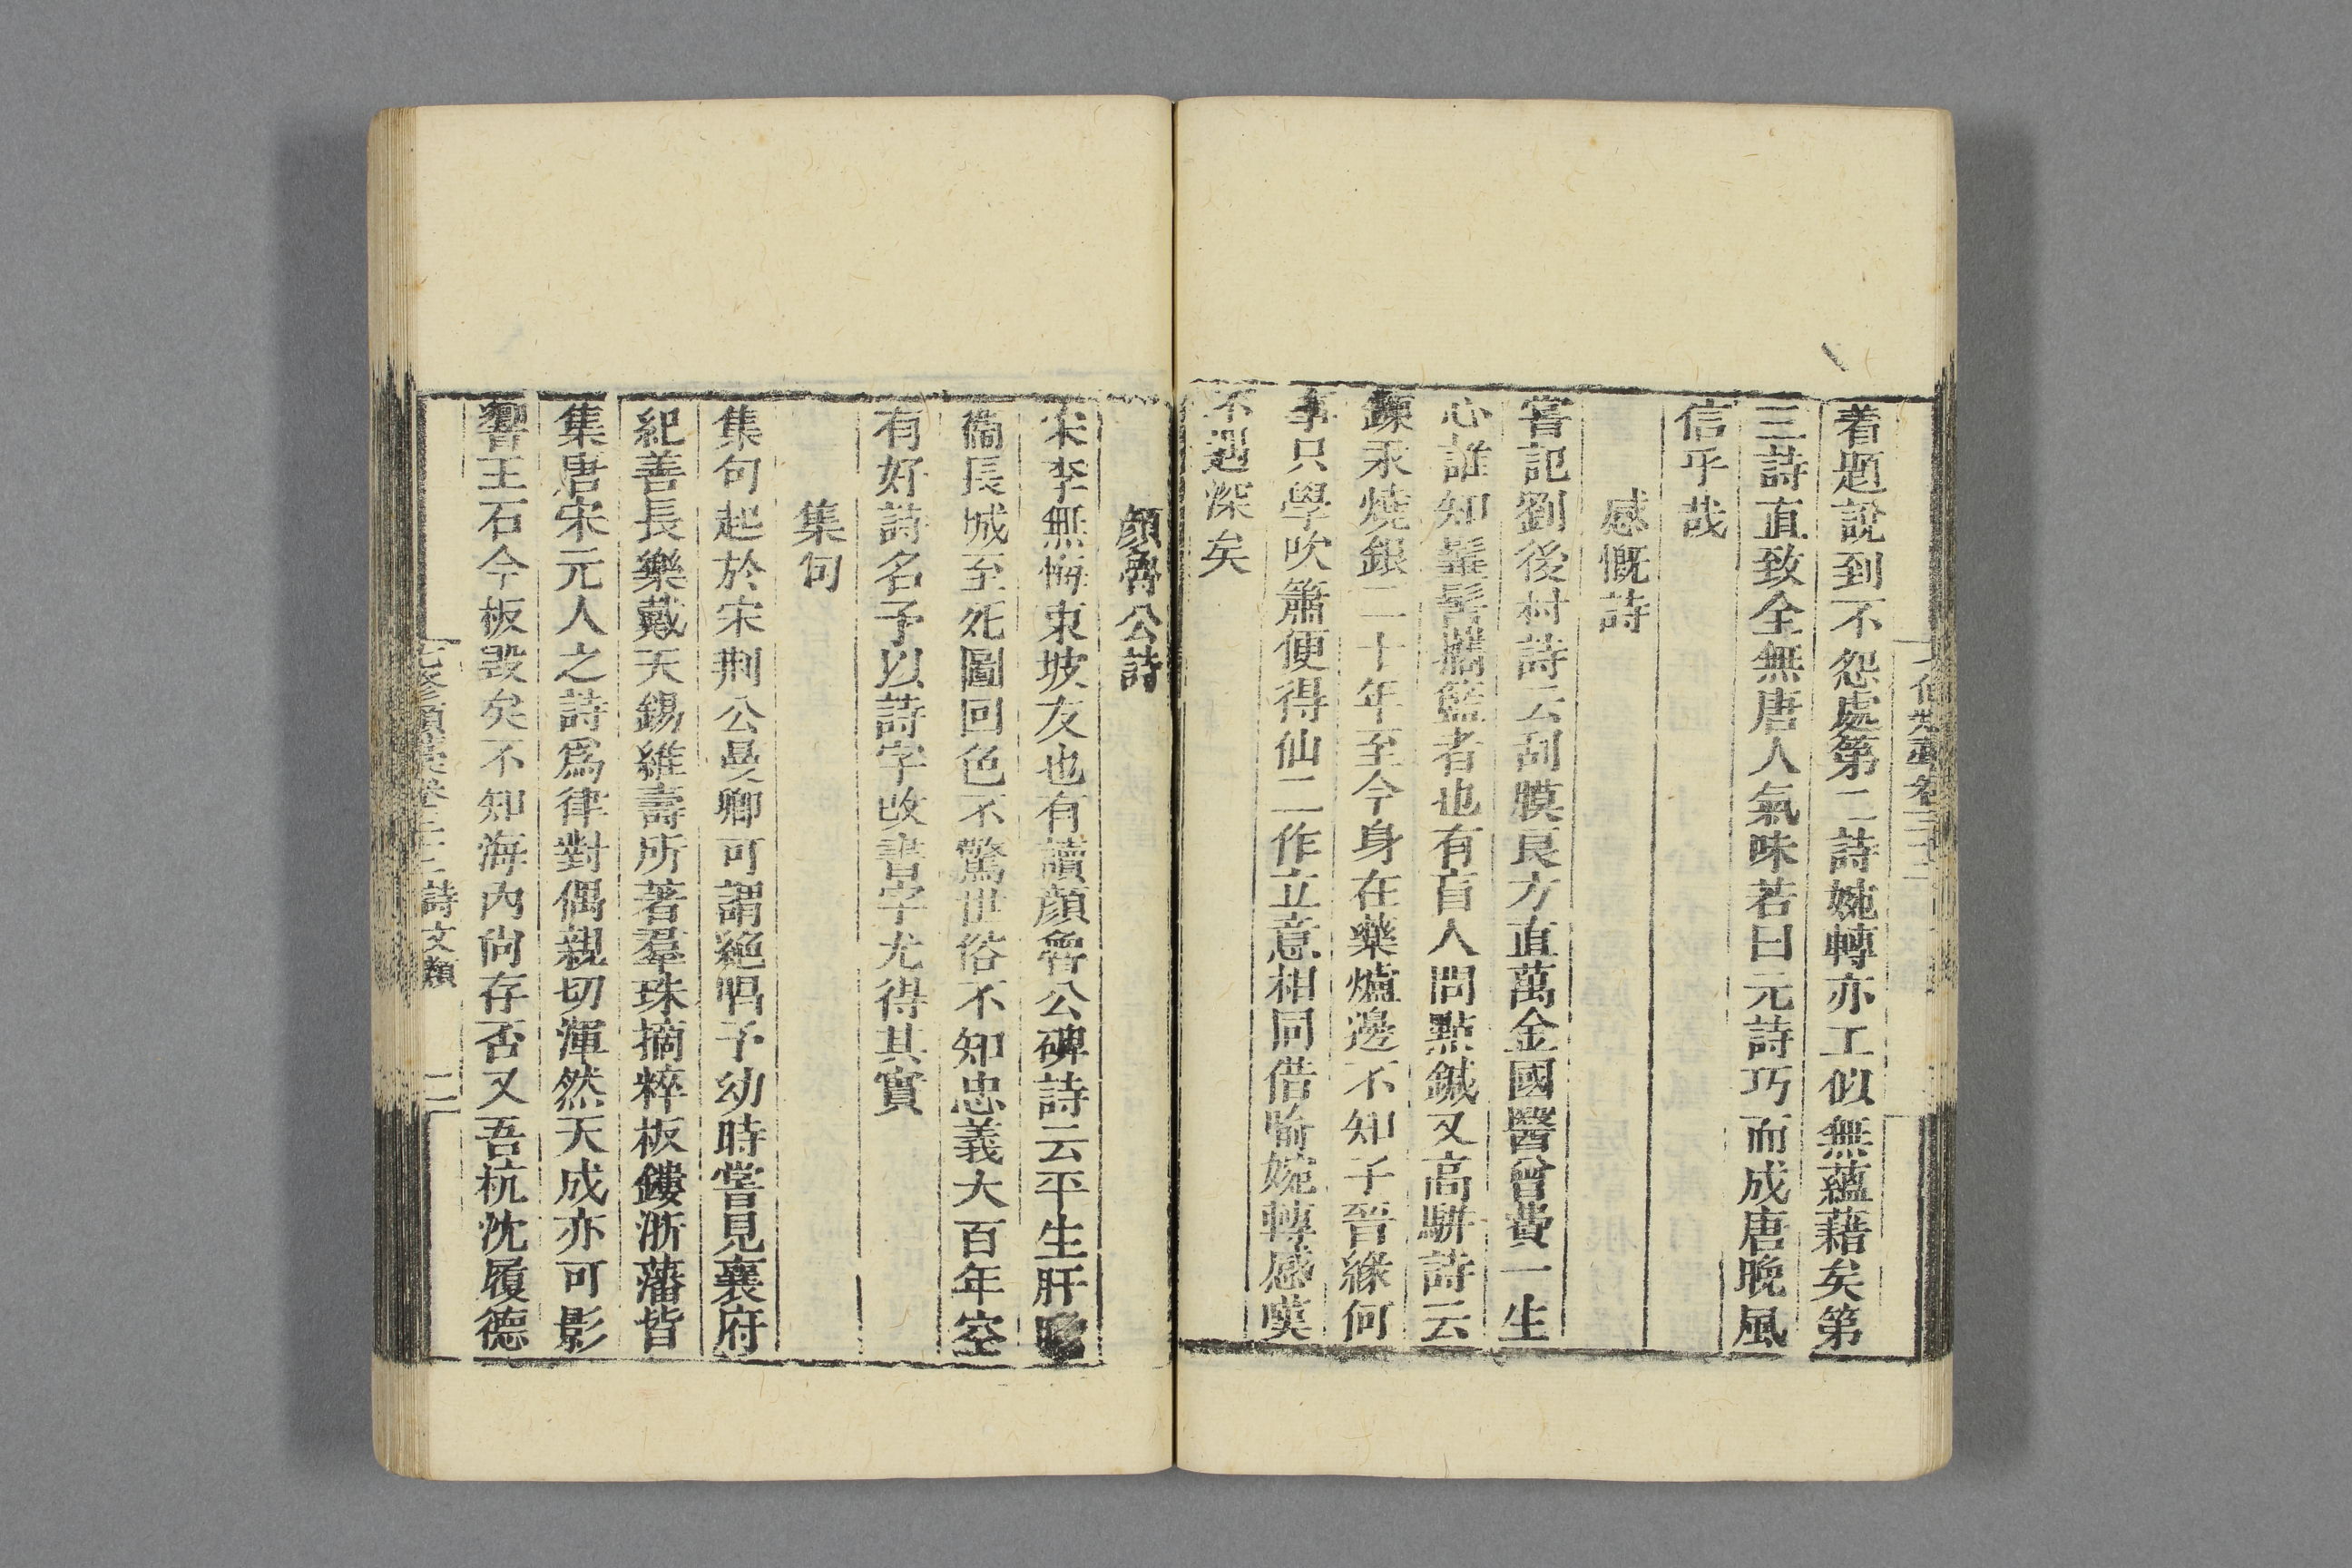 着題說到不怨處第二詩婉轉亦工似無蘊藉矣第
三詩直致全無唐人氣味若曰元詩巧而成唐晚風
信乎哉
感慨詩
嘗記劉後村詩云刮膜良方直萬金國醫曾費一生
心誰知髽髻攜籃者也有盲人問點鍼又高駢詩云
鍊汞燒銀二十年至今身在藥爐邊不知子晉緣何
事只學吹簫便得仙二作立意相同借喻婉轉感嘆
不遇深矣
顏魯公詩
宋李無悔東坡友也有讀顏魯公碑詩云平生肝
衞長城至死圖回色不驚世俗不知忠義大百年空
有好詩名予以詩字改書字尤得其實
集句
集句起於宋荆公曼卿可謂絕唱予幼時嘗見襄府
紀善長樂戴天錫維壽所著羣珠摘粹板鏤浙藩皆
集唐宋元人之詩爲律對偶親切渾然天成亦可影
響王石今板毀矣不知海內尙存否又吾杭沈履德
七修類藁卷三十二 詩文類 二